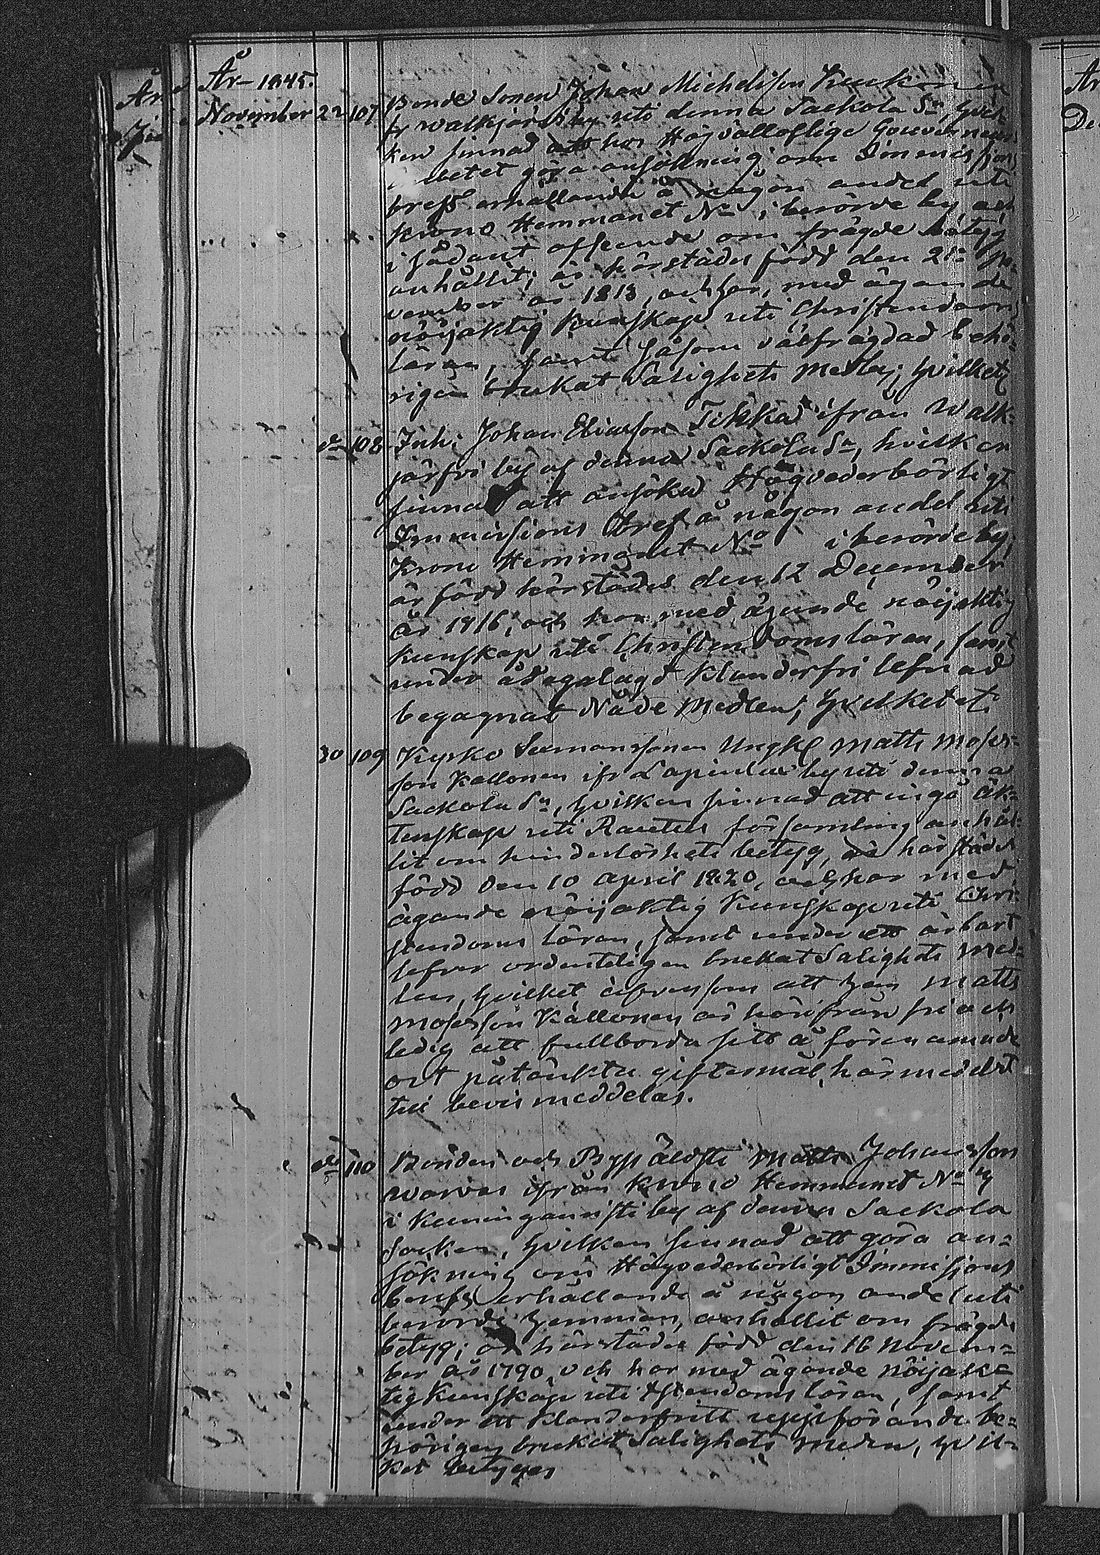 År 1845.
November 22 107 Bonde Sonen Johan Michelsson
fr Walkjärfvi by uti denna Sackola Sn, hvil-
ken sinnad att hos Högvälloflige Gouvernem:
göra ansökning om Immissions
bref erhållande å någon andel uti
Krono Hemmanet No i berörde by och
i sådant afseende om frägde betyg
anhållit; är härstädes född den 21 No-
vember år 1813, och har, med ägande
nöijaktig Kunskap uti Christendoms
läran, samt såsom välfrägdad behö-
rigen brukat Salighets Medlen; hvilket
do 108 Inh. Johan Eliasson Tikka ifrån Walk-
järfvi by af denna Sackola Sn, hvilken
sinnad att ansöka Högvederbörligt
Immissions bref å någon andel uti
Krono Hemmanet No i berörde by,
är född härstädes den 12 December
år 1816, och har med ägande nöijaktig
Kunskap uti Christendomsläran, samt
under ådagalagd klanderfri lefnad
begagnat Nåde Medlen; hvilket etc
30 109 Kyrko Sexmanssonen Ungkl Matts Moses-
son Kallonen ifr Lapinlax by uti denna
Sackola Sn, hvilken sinnad att ingå äk-
tenskap uti Rautus församling anhål-
lit om hinderlöshets betyg, är härstädes
född den 10 April 1820, och har med
ägande nöijaktig Kunskap uti Chri-
stendoms läran, samt under ett ärbart
lefver ordenteligen brukat Salighets Med-
len, hvilket äfvensom att han Matts
Mosesson Kallonen är härifrån fri och
ledig att fullborda sitt å förenämnde
ort påtänkta giftermål, härmedelst
till bevis meddelas.
do 110 Bonden och Byss äldste Matts Johansson
ifrån Krono Hemmanet No
i Kuninganristi by af denna Sackola
Socken, hvilken sinnad att göra an-
sökning om Högvederbörligt Immissions
brefs erhållande å någon andel uti
berörde hemman, anhållit om frägde
betyg; är härstädes född den 16 Novem-
ber år 1790, och har med ägande nöijak-
tig Kunskap uti Xstendoms läran, samt
under ett klanderfritt uppförande be-
hörigen brukat Salighets medlen, hvil-
ket betygas